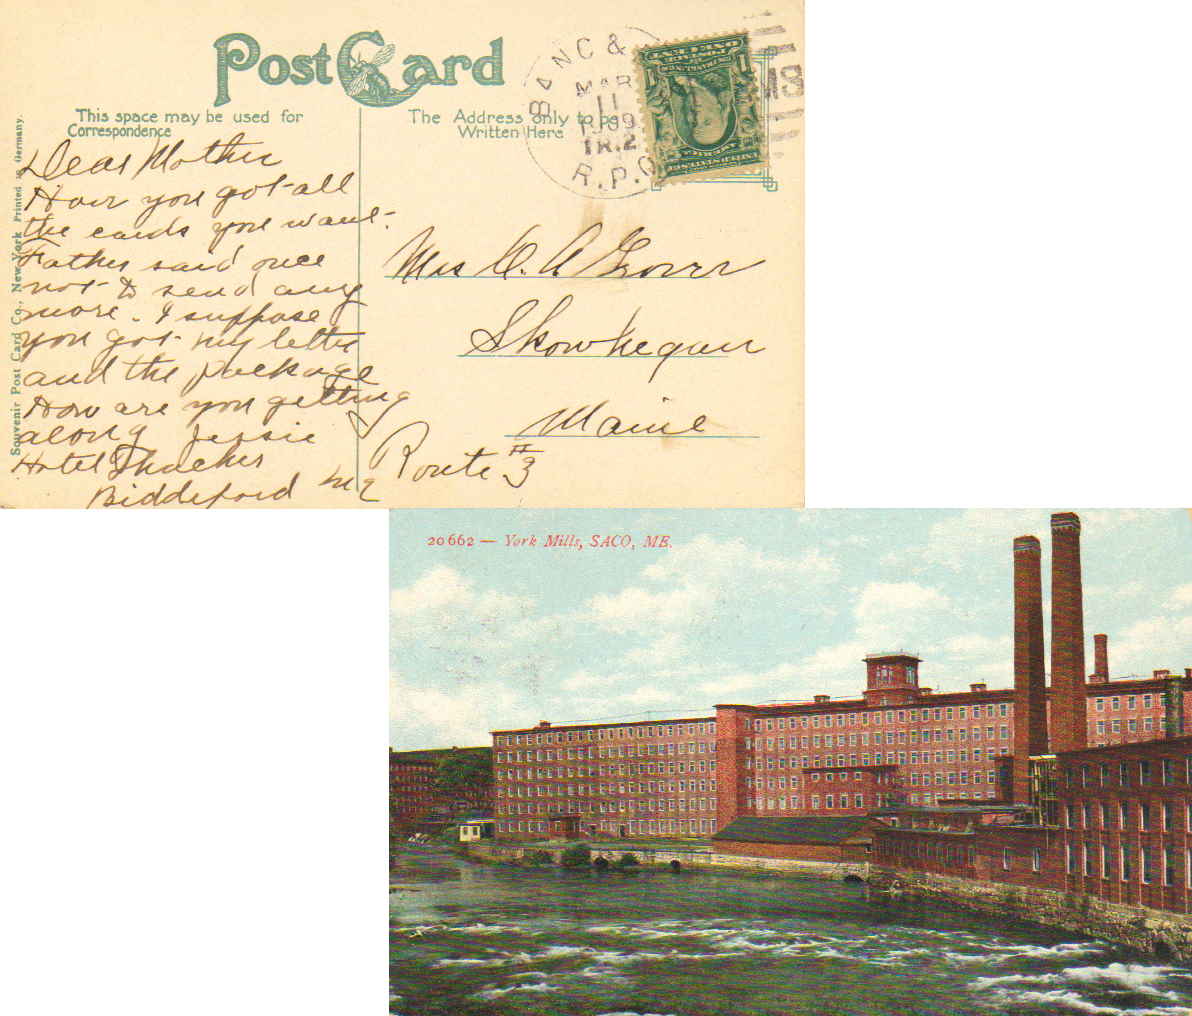 Post Card
This space may be used for
Correspondence
The Address only to be
Written Here
BANG &
MAR
11
1909
TR.2
R.P.O.
Souvenir Post Card Co., New York Printed in Germany.
Dear Mother
Have you got all
the cards you want.
Father said once
not to send any
more. I suppose
you got my letter
and the package
How are you getting
along Jessie
Hotel Thacher
Biddeford Me
Mrs A
Skowhegan
Maine
Route #3
20662 — York Mills, SACO, ME.